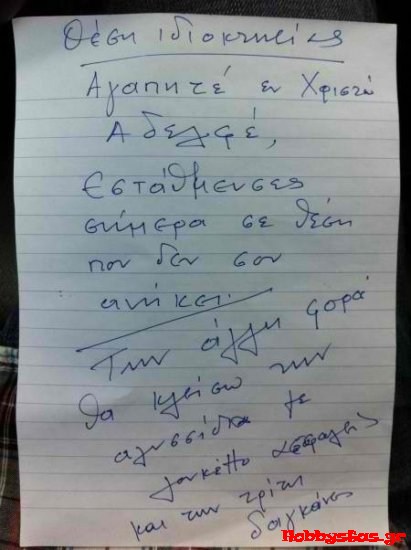 Θέση ιδιοκτησίας
Αγαπητέ εν Χριστώ
Αδελφέ,
Εστάθμευσες
σήμερα σε θέση
που δεν σου
ανήκει.
Την άλλη φορά
θα κλείσω την
αλυσσίδα με
λουκέττο ασφαλείας
και την τρίτη
δαγκάνες
Hobbystas.gr